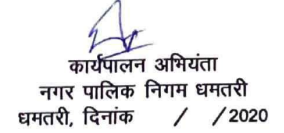 कार्यपालन अभियंता
नगर पालिक निगम धमतरी
धमतरी, दिनांक / /2020